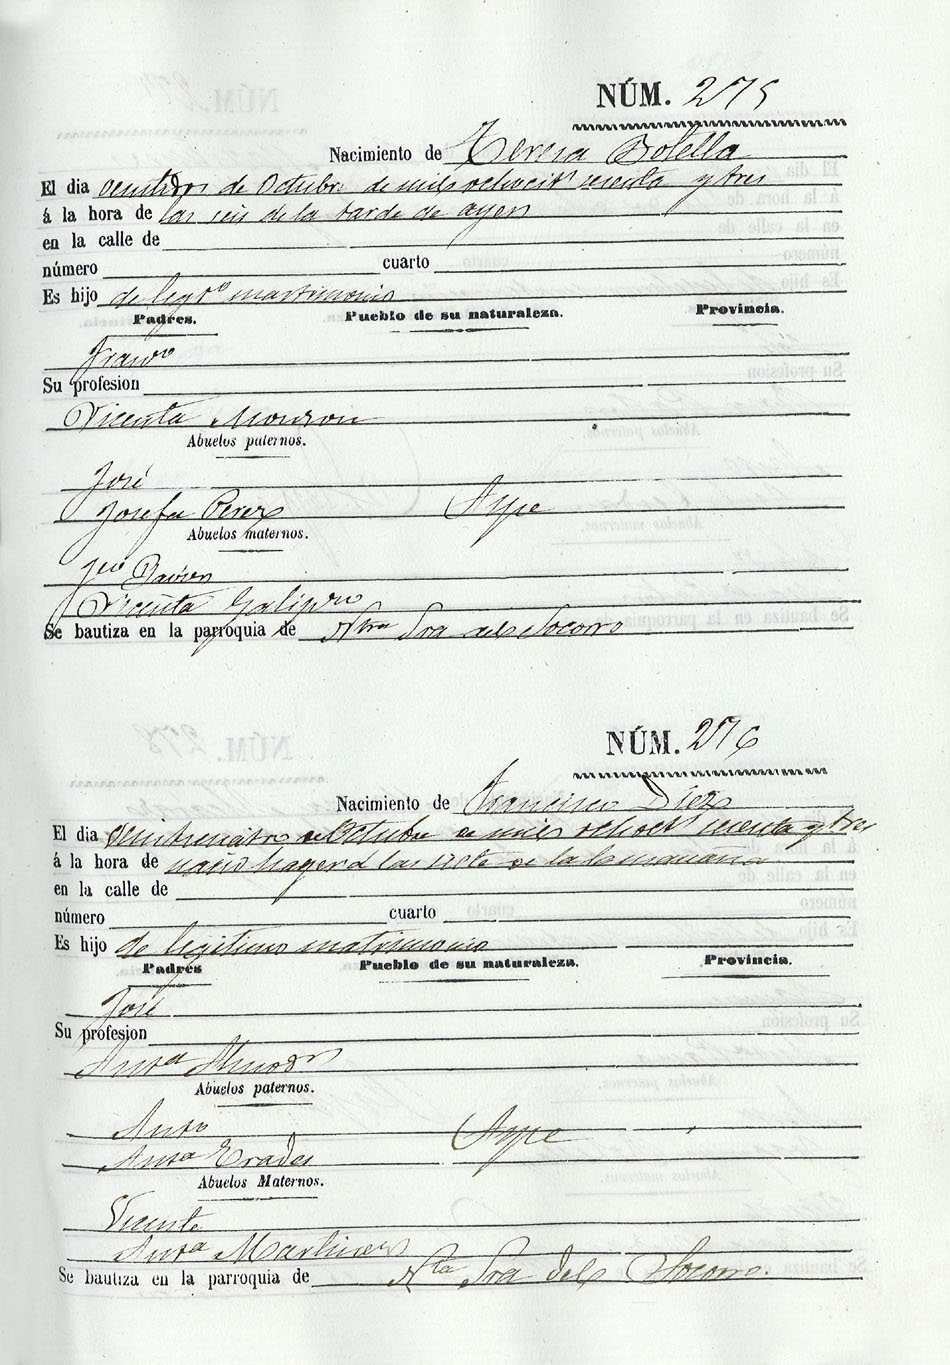 NÚM. 275
Nacimiento de Teresa Botella
El dia de Octubre de mil ochocits sesenta y tres
á la hora de las seis de la tarde de ayer
en la calle de
número cuarto
Es hijo de legto matrimonio
Padres. Pueblo de su naturaleza. Provincia.
Franco
Su profesion
Vicenta Monzon
Abuelos paternos.
José
Josefa Perez Aspe
Abuelos maternos.
Vicenta
Se bautiza en la parroquia de Ntra Sra del Socorro
NÚM. 276
Nacimiento de Francisco Diez
El dia veinticuatro de Octubre de mil ochoct sesenta y tres
á la hora de nació hayer a las siete de la mañana
en la calle de
número cuarto
Es hijo de legitimo matrimonio
Padres Pueblo de su naturaleza. Provincia.
José
Su profesion
Anta
Abuelos paternos.
Anto Aspe
Anta Erades
Abuelos Maternos.
Vicente
Anta Martinez
Se bautiza en la parroquia de Nta Sra del Socorro.